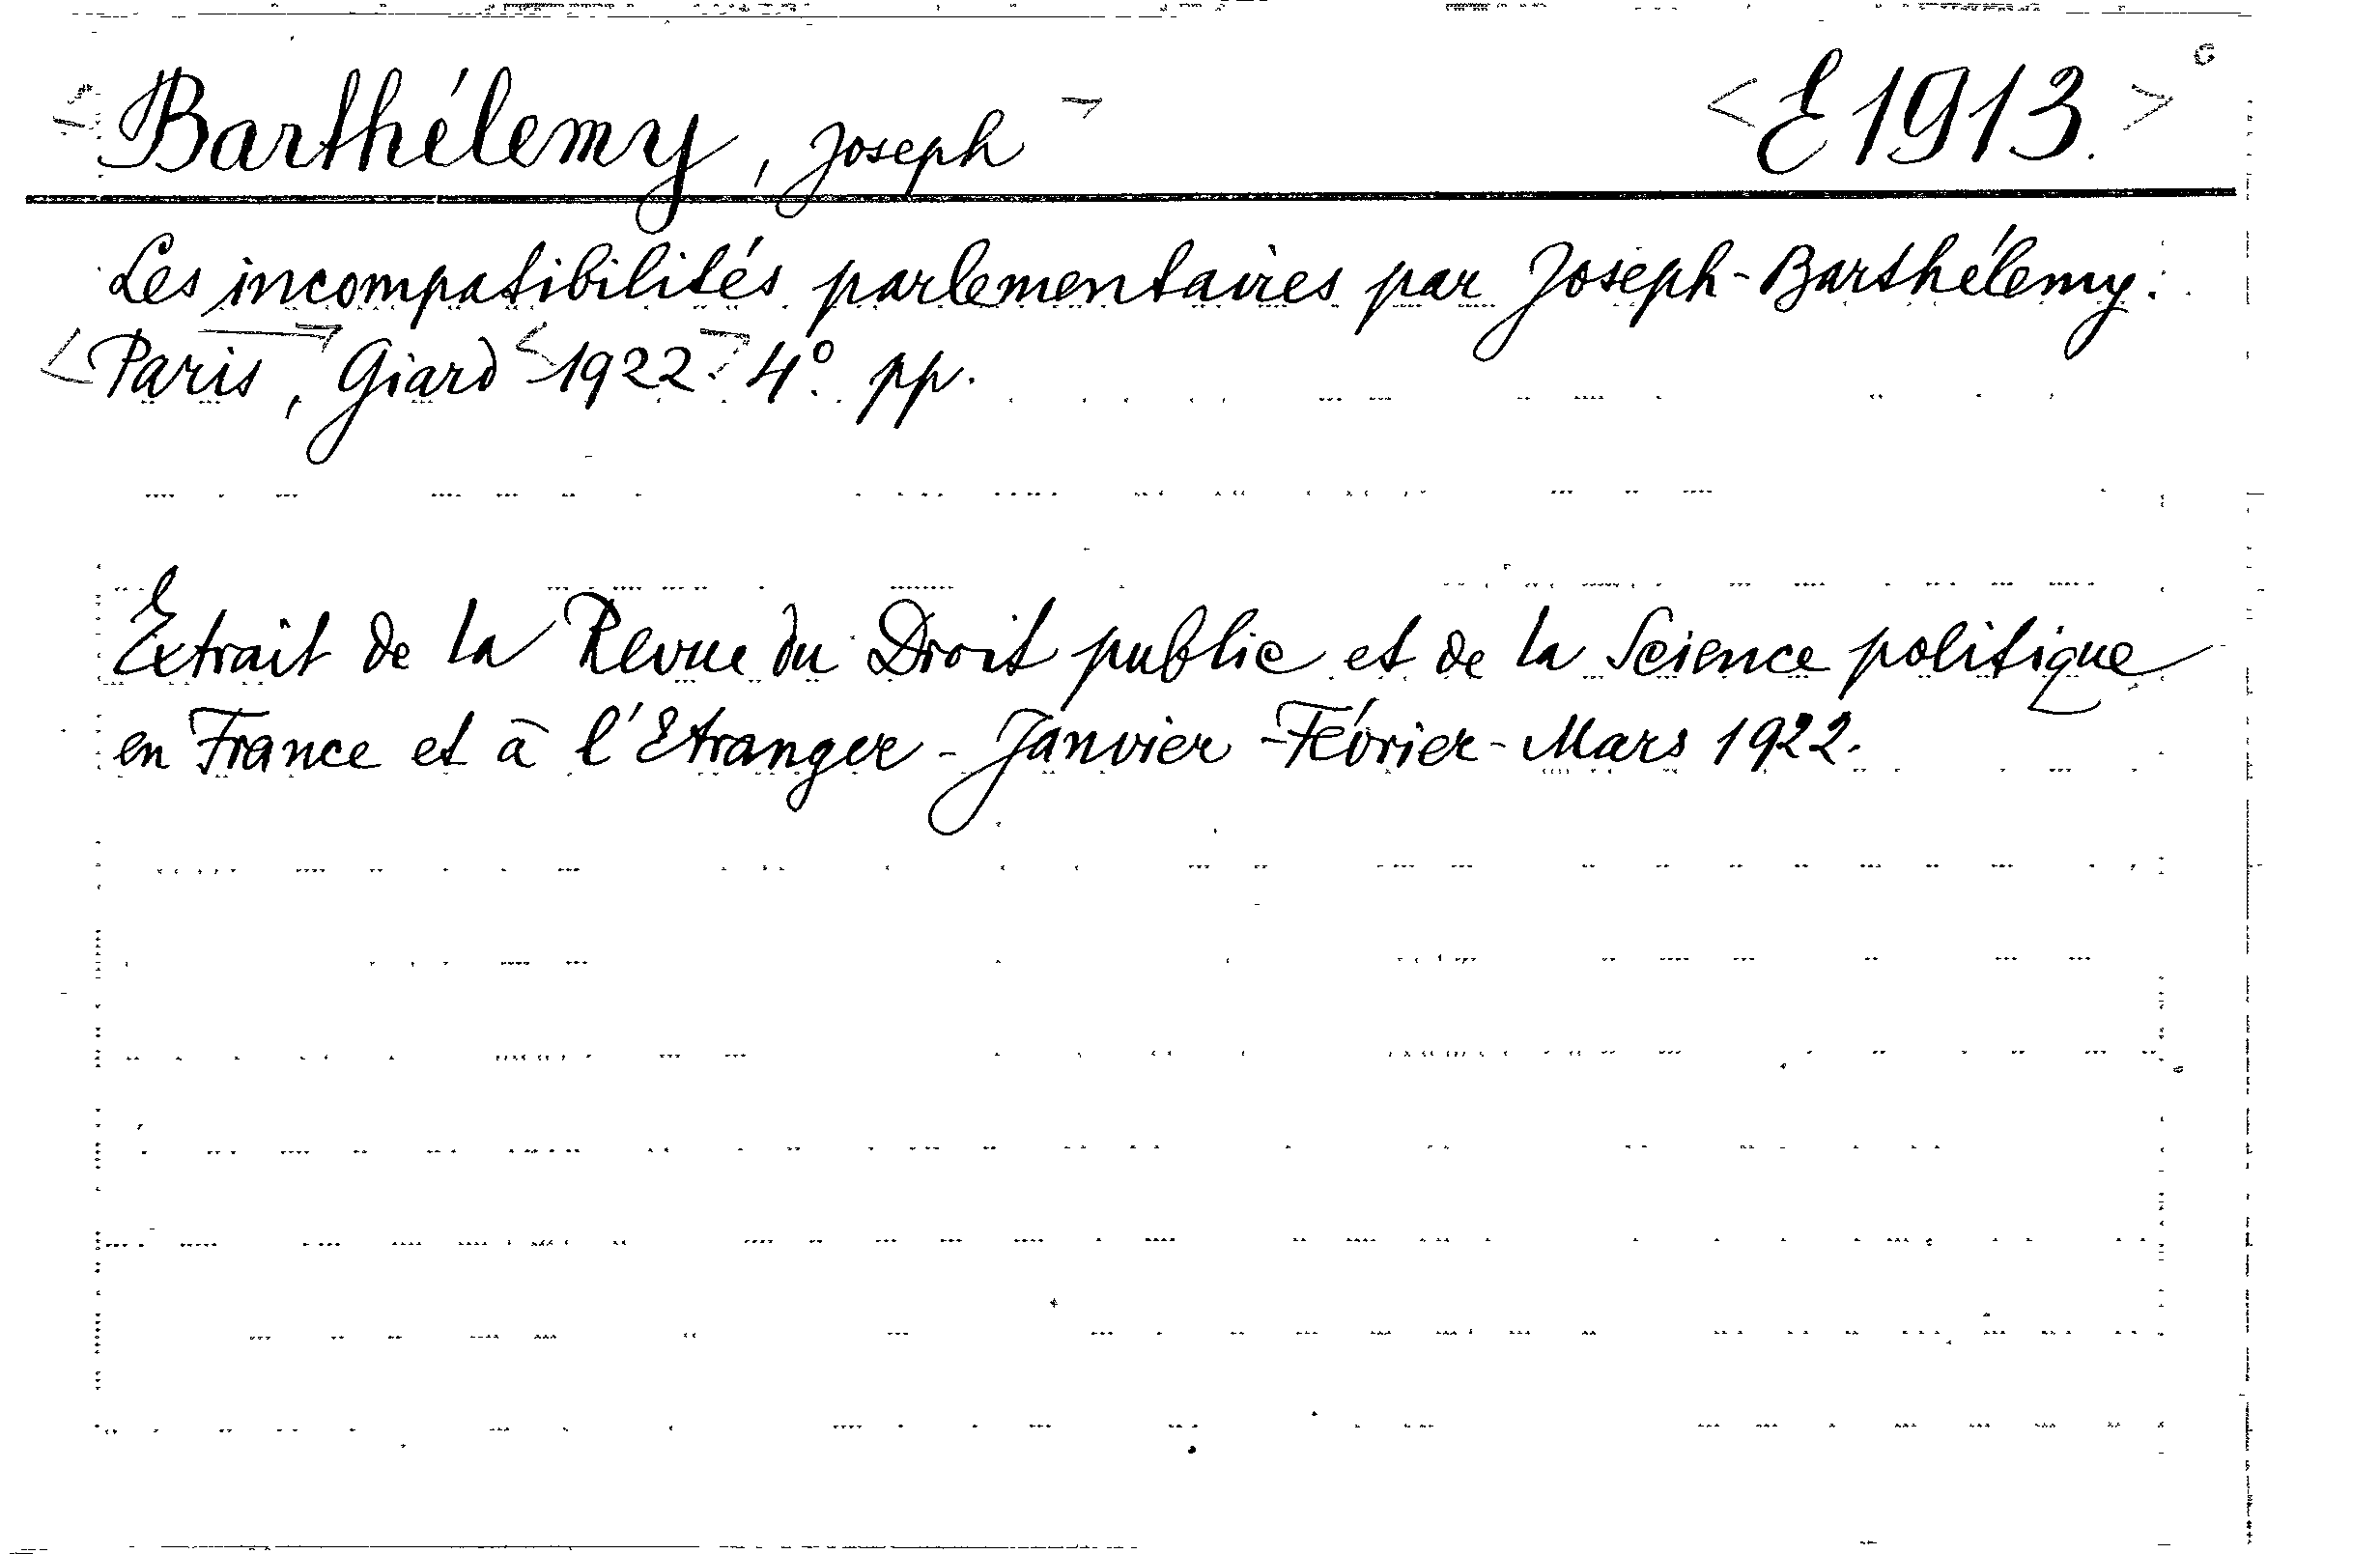 Barthélemy, Joseph <E 1913.>
Les incompatibilités parlementaires par Joseph-Barthélemy:
<Paris, Giard <1922.> 4° pp.
Extrait de la Revue du Droit public et de la Science politique
en France et à l'Etranger - Janvier - Février - Mars 1922.